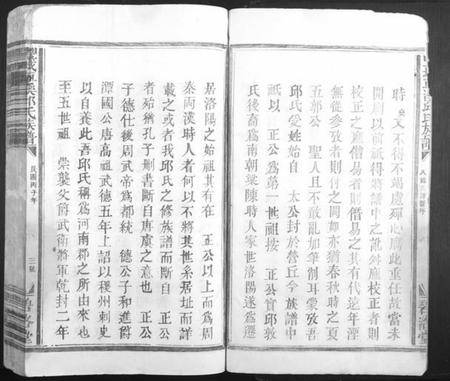 時
又不得不竭慮殫心膺此重任故當未
開局以前祇得將譜中之訛舛應校正者則
校正之應僭易者則僭易之其有代遠年湮
無從參攷者則付之闕如亦猶春秋時之夏
五郭公 聖人且不敢亂加筆削耳爰攷吾
邱氏受姓始自 太公封於營丘今族譜中
祇以 正公為第一世祖按 正公實邱敦
氏後裔為南朝梁陳時人家世洛陽遂為遷
居洛陽之始祖其有在 正公以上而為周
秦兩漢時人者何以不將其世系居址而詳
載之或者我邱氏之修族譜而斷自 正公
者殆猶孔子刪書斷自唐虞之意也 正公
子德仕後周武帝為都統 德公子和進爵
潭國公唐高祖武德五年上詔以稷州刺史
以自養此吾邱氏稱為河南郡之所由來也
至五世祖 崇襲父爵武衛將軍乾封二年
民國丙子年
三 號